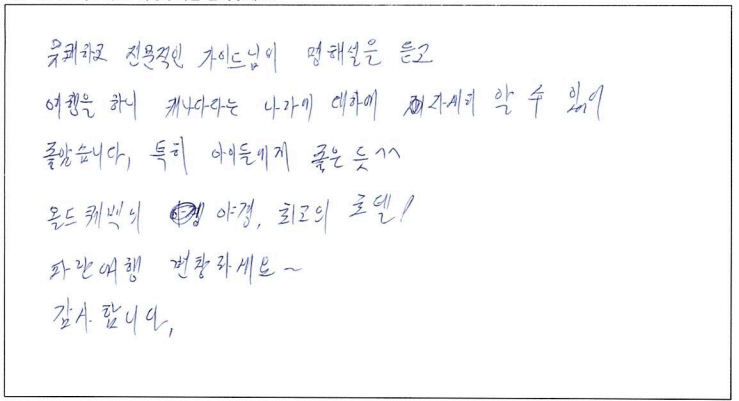 유쾌하고 전문적인 가이드님의 명해설을 듣고
여행을 하니 캐나다라는 나라에 대하여 자세히 알 수 있어
좋았습니다, 특히 아이들에게 좋은 듯^^
올드퀘벡의 야경, 최고의 호텔!
파란여행 번창하세요~
감사합니다,